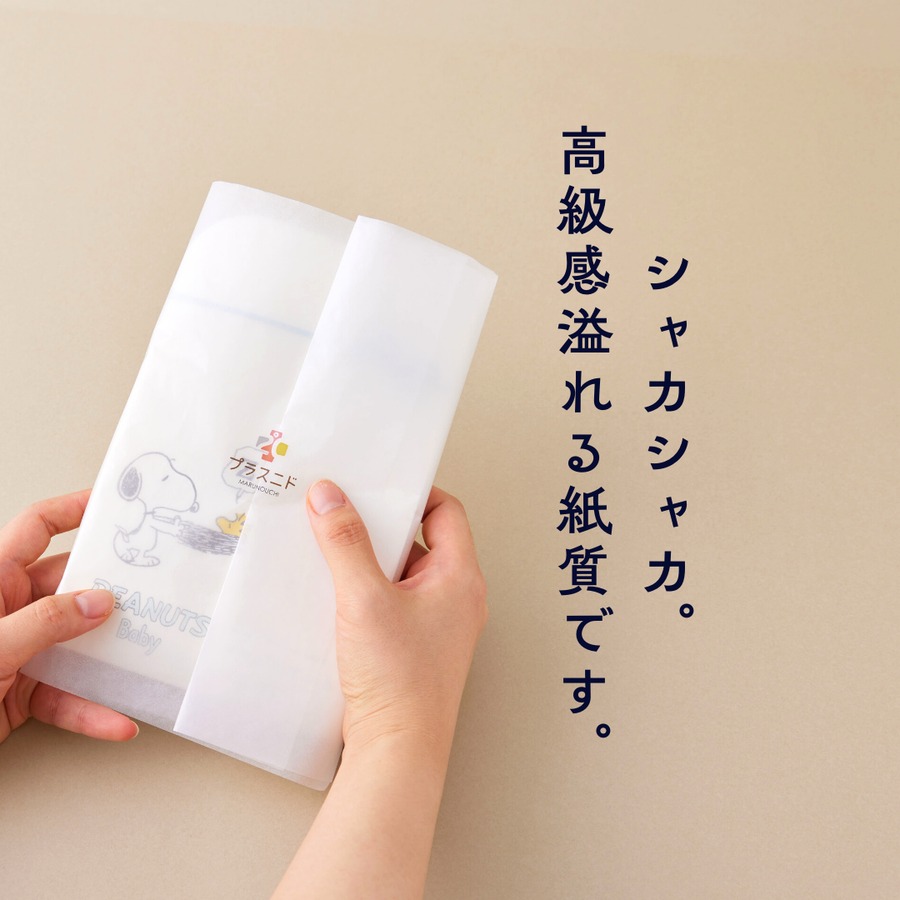 シャカシャカ。
高級感溢れる紙質です。
プラスニド
MARUNOUCHI
PEANUTS
Baby